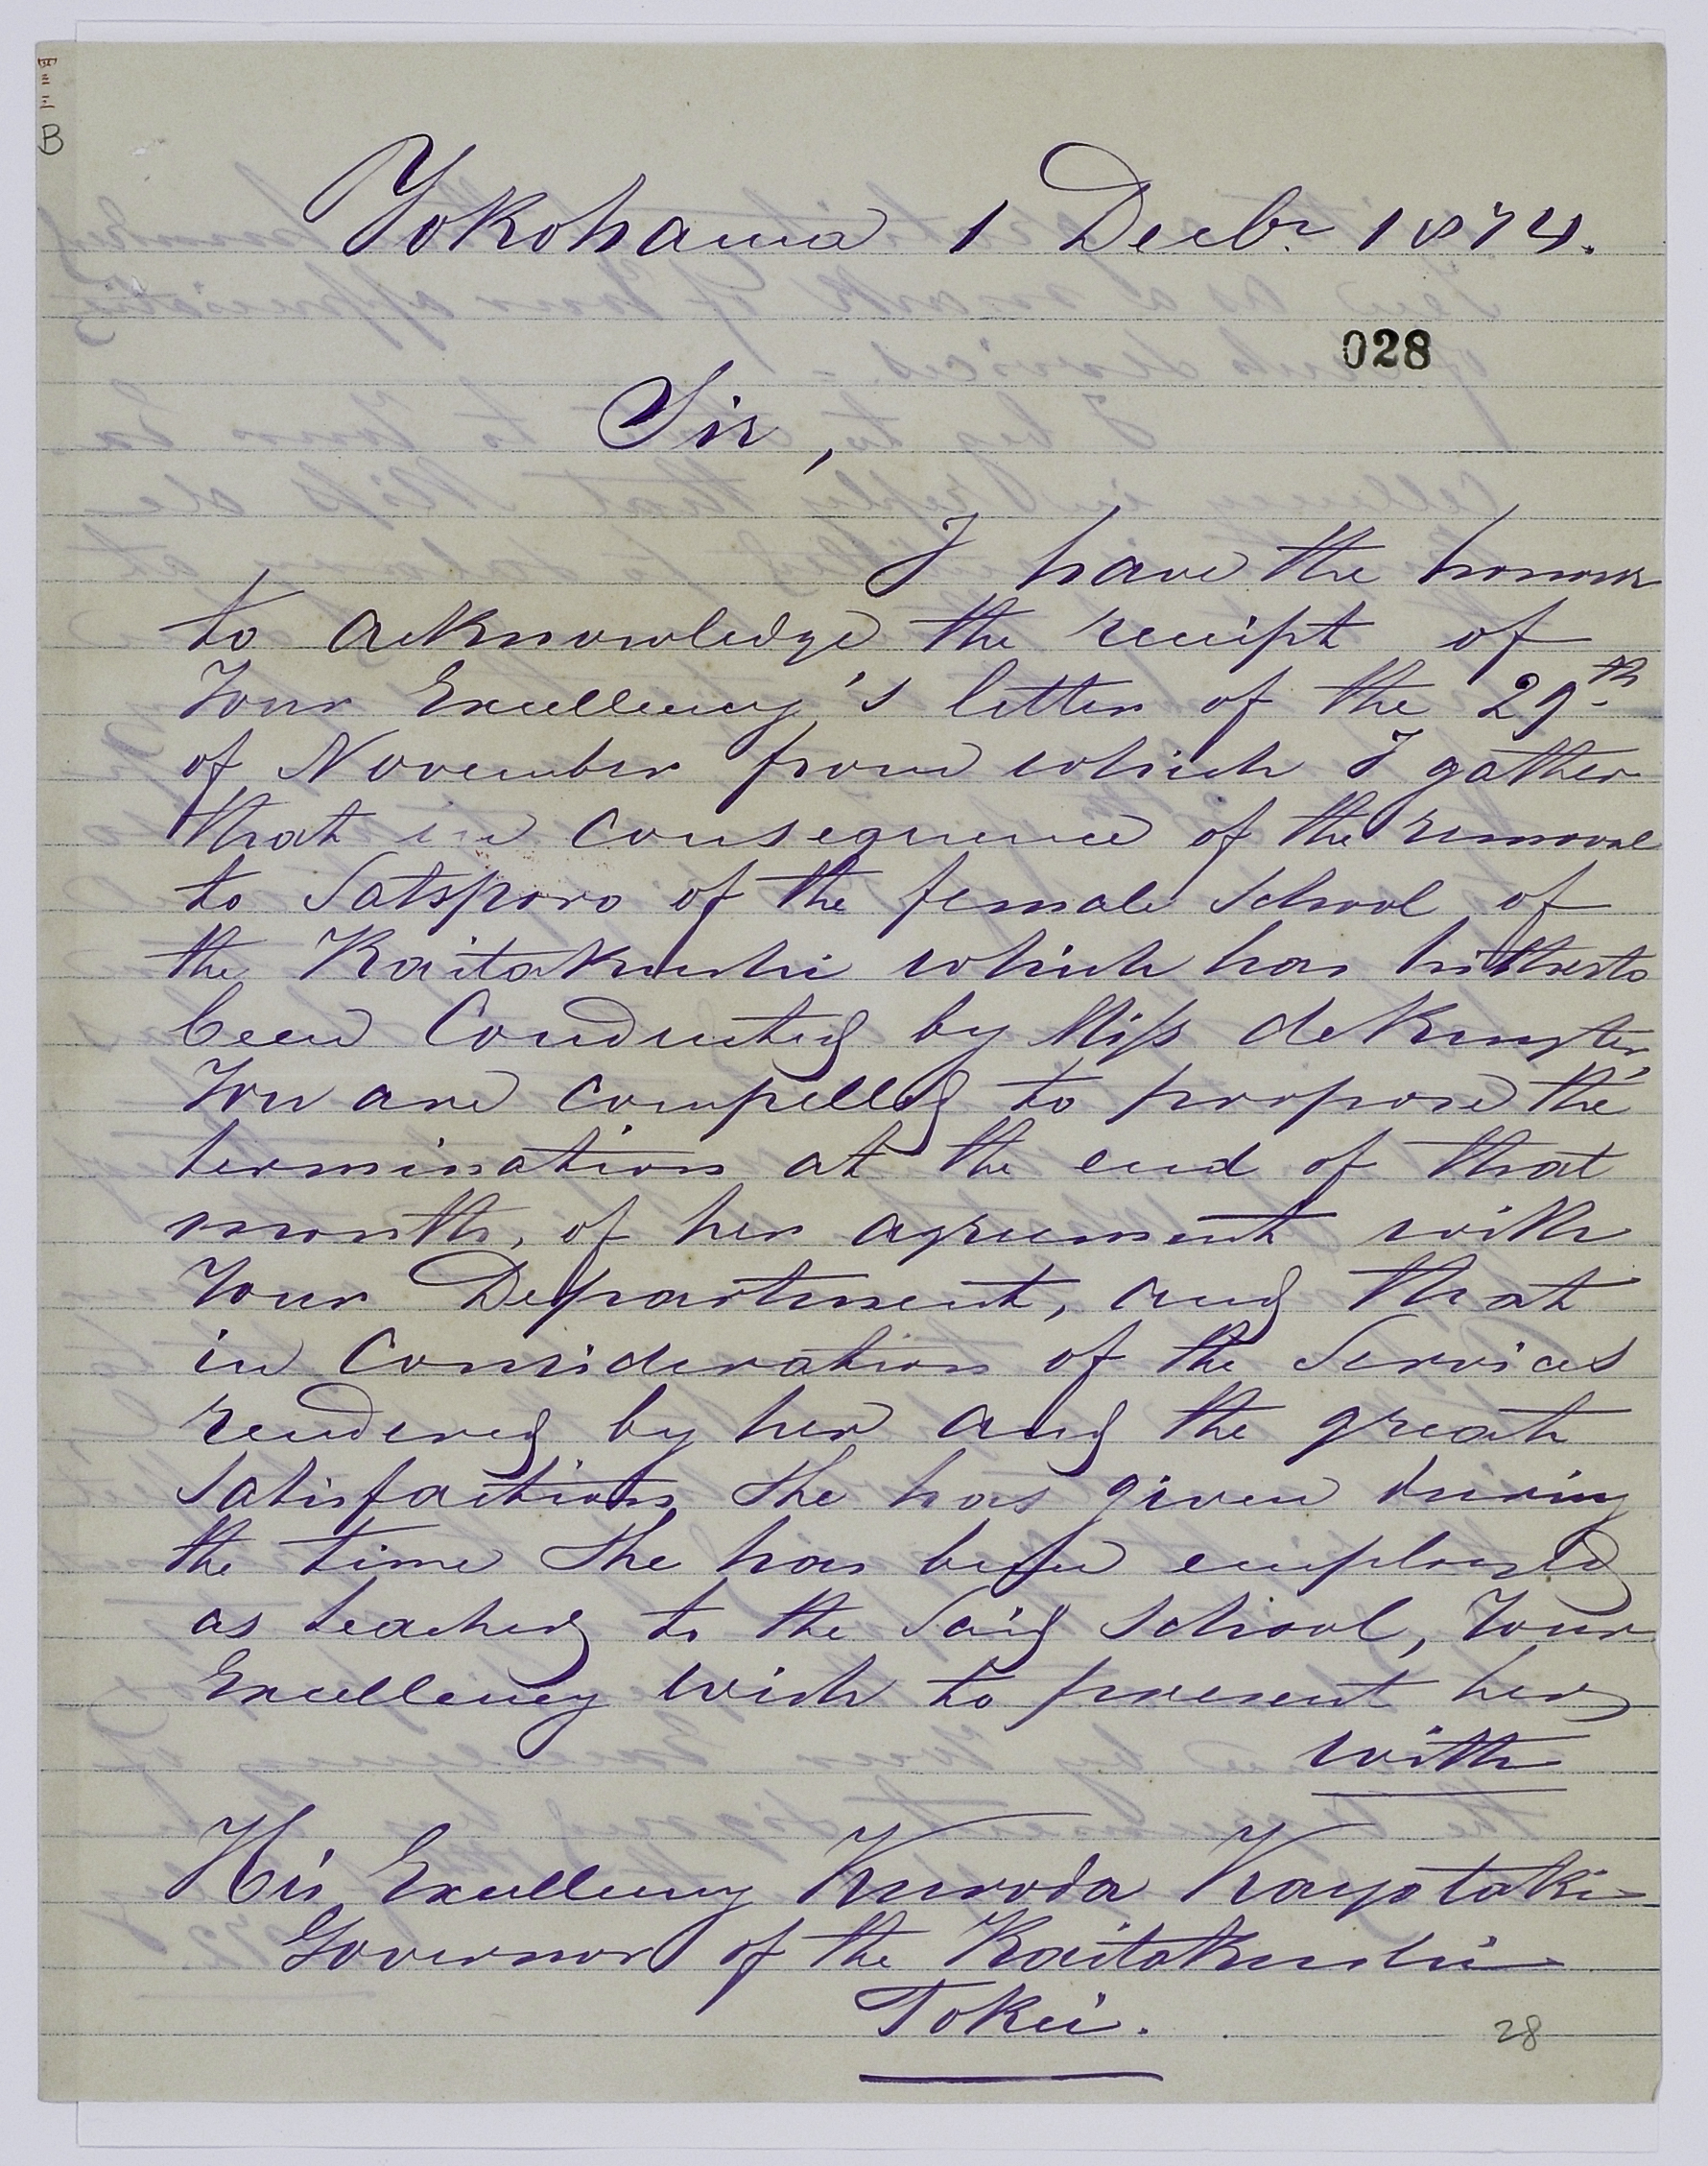 B
Yokohama 1 Decbr 1874.
028
Sir,
I have the honour
to acknowledge the receipt of
Your Excellency's letter of the 29th
of November from which I gather
that in consequence of the removal
to Satsporo of the female school of
the Kaitakushi which has hitherto
been conducted by Miss de Ruyter,
You are compelled to propose the
termination at the end of that
month, of her agreement with
Your Department, and that
in consideration of the Services
rendered by her and the great
satisfaction she has given during
the time she has been employed
as teacher to the said school, Your
Excellency wish to present her
with
His Excellency Kuroda Kayotaki
Governor of the Kaitakushi
Tokei.
28